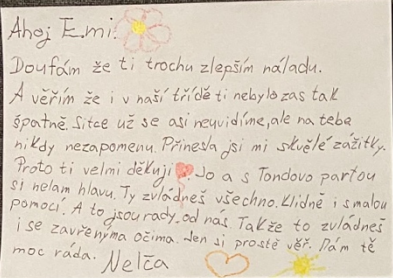 Ahoj Emi!
Doufám že ti trochu zlepším náladu.
A věřím že i v naší třídě ti nebylo zas tak
špatně. Sitce už se asi neuvidíme, ale na tebe
nikdy nezapomenu. Přinesla jsi mi skvělé zážitky.
Proto ti velmi děkuji Jo a s Tondovo partou
si nelam hlavu. Ty zvládneš všechno. Klidně i s malou
pomocí. A to jsou rady od nás. Takže to zvládneš
i se zavřenýma očima. Jen si prostě věř. Mám tě
moc ráda. Nelča